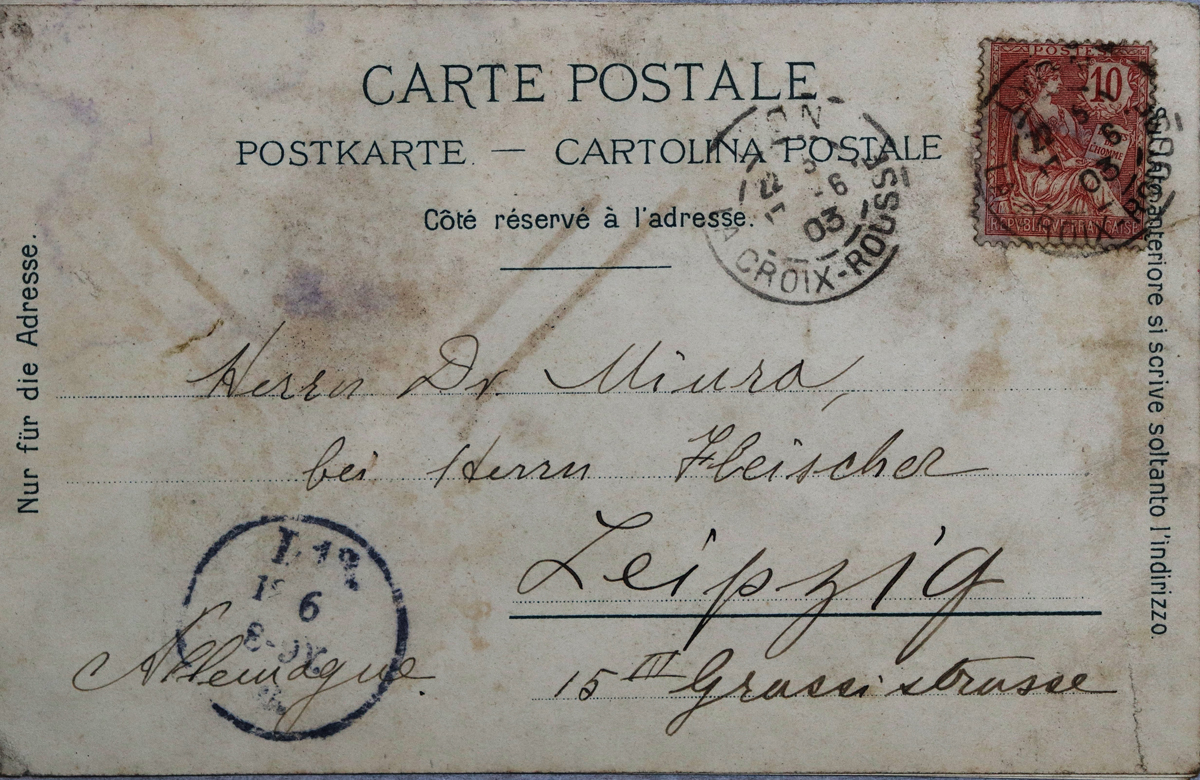 CARTE POSTALE
POSTKARTE. — CARTOLINA POSTALE
Côté réservé à l'adresse.
Nur für die Adresse.
anteriore si scrive soltanto l'indirizzo.
POSTE
10
L'HOMME
REPUBLIQUE FRANÇAISE
LYON
6
03
LA CROIX-ROUSSE
Herrn Dr. Miura,
bei Herrn Fleischer
Leipzig
15 III Grassi strasse
Allemagne.
6